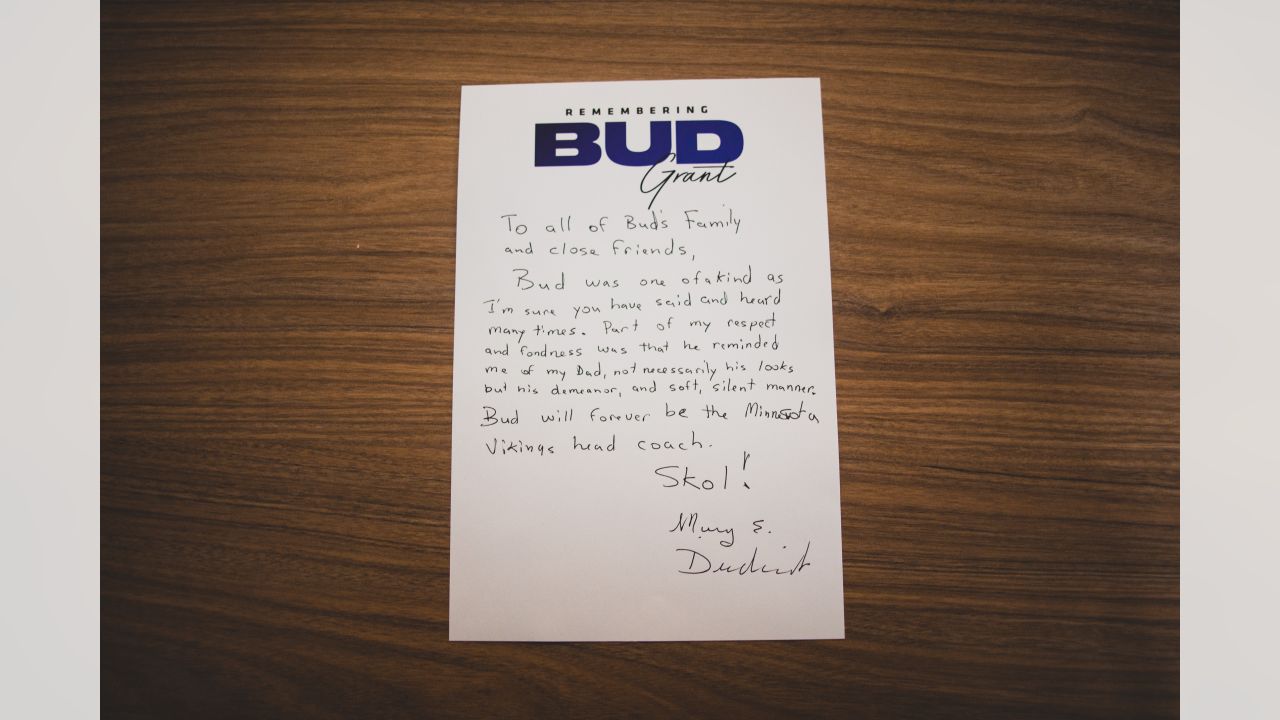 REMEMBERING
BUD
Grant
To all of Bud's Family
and close friends,
Bud was one of a kind as
I'm sure you have said and heard
many times. Part of my respect
and fondness was that he reminded
me of my Dad, not necessarily his looks
but his demeanor, and soft, silent manner.
Bud will forever be the Minnesota
Vikings head coach.
Skol!
Mary E.